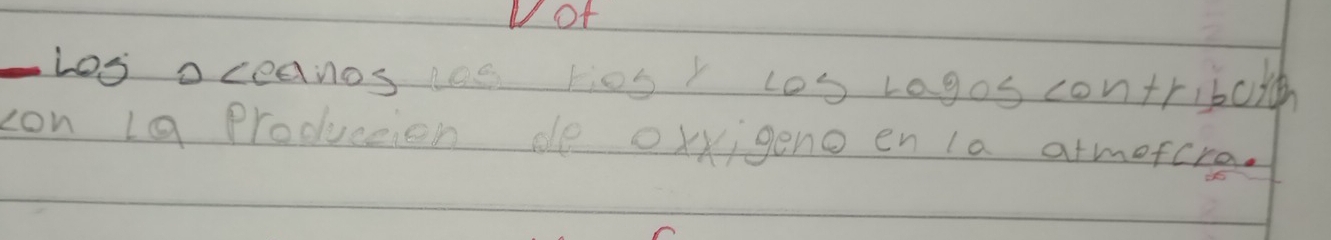 V of
- Los oceanos los rios y los lagos contribuyen
con la Produccion de oxxigeno en la atmofera.